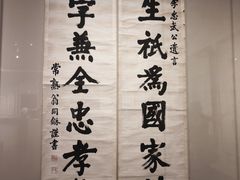 李忠武公遺言
生祇為國家
字兼全忠孝
常熟翁同龢謹書